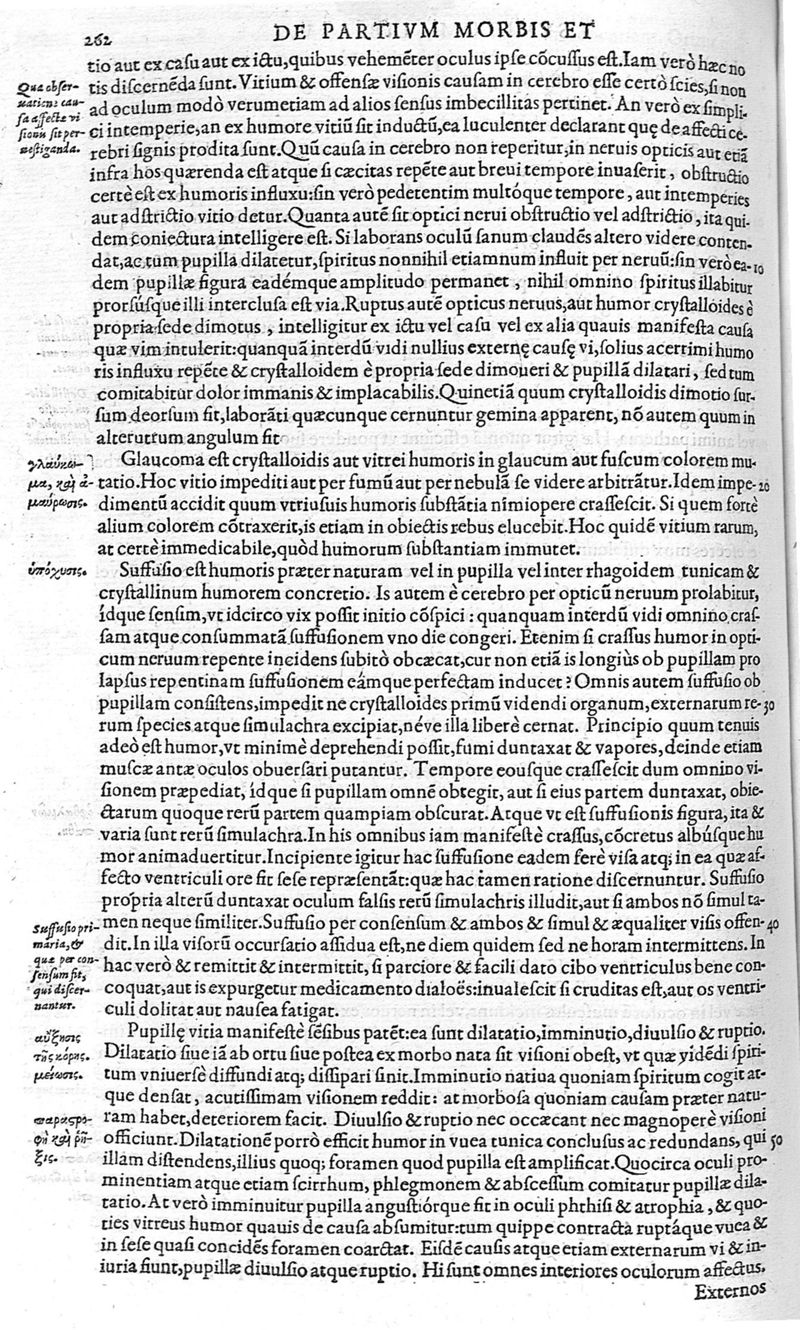 262
DE PARTIVM MORBIS ET
tio aut ex casu aut ex ictu, quibus vehemẽter oculus ipse cõcussus est. Iam verò hæc no
Qua obser-
uatione cau-
sa affectæ vi
sionis sit per-
uestiganda.
tis discernẽda sunt. Vitium & offensæ visionis causam in cerebro esse certò scies, si non
ad oculum modò verumetiam ad alios sensus imbecillitas pertinet. An verò ex simpli-
ci intemperie, an ex humore vitiũ sit inductũ, ea luculenter declarant quę de affecti ce-
rebri signis prodita sunt. Quũ causa in cerebro non reperitur, in neruis opticis aut etiã
infra hos quærenda est atque si cæcitas repẽte aut breui tempore inuaserit, obstructio
certè est ex humoris influxu: sin verò pedetentim multóque tempore, aut intemperies
aut adstrictio vitio detur. Quanta autẽ sit optici nerui obstructio vel adstrictio, ita qui-
dem coniectura intelligere est. Si laborans oculũ sanum claudẽs altero videre conten-
dat, ac tum pupilla dilatetur, spiritus nonnihil etiamnum influit per neruũ: sin verò ea- 10
dem pupillæ figura eadémque amplitudo permanet, nihil omnino spiritus illabitur
prorsúsque illi interclusa est via. Ruptus autẽ opticus neruus, aut humor crystalloides è
propria sede dimotus, intelligitur ex ictu vel casu vel ex alia quauis manifesta causa
quæ vim intulerit: quanquã interdũ vidi nullius externę causę vi, solius acerrimi humo
ris influxu repẽte & crystalloidem è propria sede dimoueri & pupillã dilatari, sed tum
comitabitur dolor immanis & implacabilis. Quinetiã quum crystalloidis dimotio sur-
sum deorsum fit, laborãti quæcunque cernuntur gemina apparent, nõ autem quum in
alterutrum angulum fit
γλαύκω-
μα, καὶ ἀ-
μαύρωσις.
Glaucoma est crystalloidis aut vitrei humoris in glaucum aut fuscum colorem mu-
tatio. Hoc vitio impediti aut per fumũ aut per nebulã se videre arbitrãtur. Idem impe- 20
dimentũ accidit quum vtriusuis humoris substãtia nimiopere crassescit. Si quem fortè
alium colorem cõtraxerit, is etiam in obiectis rebus elucebit. Hoc quidẽ vitium rarum,
at certè immedicabile, quòd humorum substantiam immutet.
ὑπόχυσις.
Suffusio est humoris præter naturam vel in pupilla vel inter rhagoidem tunicam &
crystallinum humorem concretio. Is autem è cerebro per opticũ neruum prolabitur,
ídque sensim, vt idcirco vix possit initio cõspici: quanquam interdũ vidi omnino cras-
sam atque consummatã suffusionem vno die congeri. Etenim si crassus humor in opti-
cum neruum repente incidens subitò obcæcat, cur non etiã is longiùs ob pupillam pro
lapsus repentinam suffusionem eámque perfectam inducet? Omnis autem suffusio ob
pupillam consistens, impedit ne crystalloides primũ videndi organum, externarum re- 30
rum species atque simulachra excipiat, néve illa liberè cernat. Principio quum tenuis
adeò est humor, vt minimè deprehendi possit, fumi duntaxat & vapores, deinde etiam
muscæ antæ oculos obuersari putantur. Tempore eousque crassescit dum omnino vi-
sionem præpediat, ídque si pupillam omnẽ obtegit, aut si eius partem duntaxat, obie-
ctarum quoque rerũ partem quampiam obscurat. Atque vt est suffusionis figura, ita &
varia sunt rerũ simulachra. In his omnibus iam manifestè crassus, cõcretus albúsque hu
mor animaduertitur. Incipiente igitur hac suffusione eadem ferè visa atq; in ea quæ af-
fecto ventriculi ore fit sese repræsentãt: quæ hac tamen ratione discernuntur. Suffusio
propria alterũ duntaxat oculum falsis rerũ simulachris illudit, aut si ambos nõ simul ta-
Suffusio pri-
maria, &
quæ per con-
sensum fit,
qui discer-
nantur.
men neque similiter. Suffusio per consensum & ambos & simul & æqualiter visis offen- 40
dit. In illa visorũ occursatio assidua est, ne diem quidem sed ne horam intermittens. In
hac verò & remittit & intermittit, si parciore & facili dato cibo ventriculus bene con-
coquat, aut is expurgetur medicamento dialoës: inualescit si cruditas est, aut os ventri-
culi dolitat aut nausea fatigat.
αὔξησις
τῆς κόρης.
μείωσις.
Pupillę vitia manifestè sẽsibus patẽt: ea sunt dilatatio, imminutio, diuulsio & ruptio.
Dilatatio siue iã ab ortu siue postea ex morbo nata sit visioni obest, vt quæ vidẽdi spiri-
tum vniuersè diffundi atq; dissipari sinit. Imminutio natiua quoniam spiritum cogit at-
que densat, acutissimam visionem reddit: at morbosa quoniam causam præter natu-
παρασρο-
φὴ καὶ ῥῆ-
ξις.
ram habet, deteriorem facit. Diuulsio & ruptio nec occæcant nec magnoperè visioni
officiunt. Dilatationẽ porrò efficit humor in vuea tunica conclusus ac redundans, qui 50
illam distendens, illius quoq; foramen quod pupilla est amplificat. Quocirca oculi pro-
minentiam atque etiam scirrhum, phlegmonem & abscessum comitatur pupillæ dila-
tatio. At verò imminuitur pupilla angustiórque fit in oculi phthisi & atrophia, & quo-
ties vitreus humor quauis de causa absumitur: tum quippe contractà ruptáque vuea &
in sese quasi concidẽs foramen coarctat. Eisdẽ causis atque etiam externarum vi & in-
iuria fiunt, pupillæ diuulsio atque ruptio. Hi sunt omnes interiores oculorum affectus.
Externos